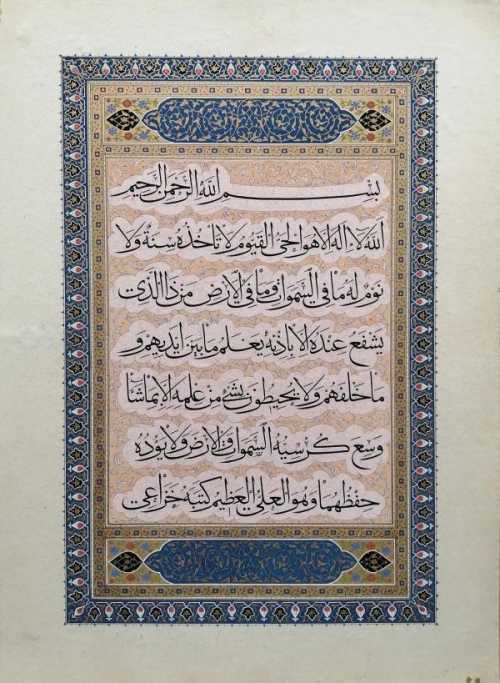 بسم الله الرحمن الرحيم
الله لا اله الا هو الحی القیوم لا تاخذه سنة ولا
نوم له ما فی السموات وما فی الارض من ذا الذی
یشفع عنده الا باذنه یعلم ما بین ایدیهم و
ما خلفهم ولا یحیطون بشیء من علمه الا بما شاء
وسع کرسیه السموات والارض ولا یوده
حفظهما وهو العلی العظیم کتبه خزاعی